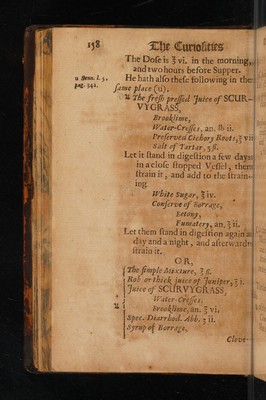 158 The Curiosities
The Dose is ℥ vi. in the morning,
and two hours before Supper.
u Senn. l. 5.
pag. 542.
He hath also these following in the
same place (u).
♃ The fresh pressed Juice of SCUR-
VYGRASS,
Brooklime,
Water-Cresses, an. ℔ ii.
Preserved Cichory Roots, ℥ vi
Salt of Tartar, ʒ ß.
Let it stand in digestion a few days
in a close stopped Vessel, then
strain it, and add to the strain-
ing
White Sugar, ℥ iv.
Conserve of Borrage,
Betony,
Fumatery, an. ℥ ii.
Let them stand in digestion again a
day and a night, and afterwards
strain it.
OR,
The simple Mixture, ℥ ß.
Rob or thick juice of Juniper, ℥ i.
Juice of SCURVYGRASS,
Water-Cresses,
♃ Brooklime, an. ℥ vi.
Spec. Diarrhod. Abb. ʒ ii.
Syrup of Borrage,
Clove-